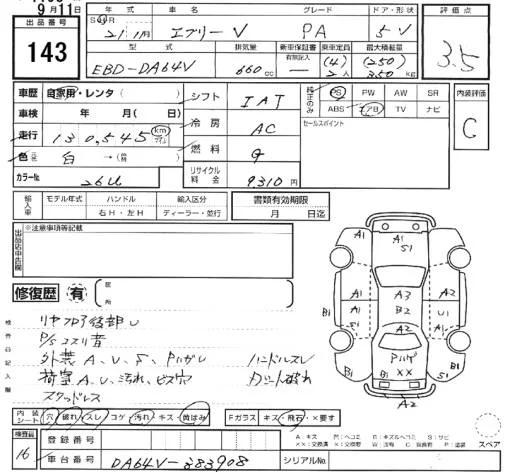 9月11日
出品番号
143
年式 車名 グレード ドア・形状
S H R
21年 1月 エブリーV PA 5V
型式 排気量 新車保証書 乗車定員 最大積載量
有無記入 (4) (250)
EBD-DA64V 660cc — 2人 350kg
評価点
3.5
車歴 自家用・レンタ( )
車検 年 月( 日)
走行 130,545 km マイル
色 白 →( )
カラーNo. 26U
シフト IAT
冷房 AC
燃料 G
リサイクル料金 9310円
純正のみ
PS PW AW SR
ABS エアB TV ナビ
セールスポイント
内装評価
C
輸入車
モデル年式 ハンドル 輸入区分
年 右H・左H ディーラー・並行
書類有効期限
月 日迄
出品店申告欄
※注意事項等記載
修復歴 有
箇所
検査員記入欄
リヤフロア後部U
P/Sコスリ有
外装 A、U、S、Pハガレ ハンドルスレ
荷室A、U、汚れ、ビス穴 Aシート破れ
スタッドレス
A1 A1 S1
A1 A3 A1
B1 A1 B2 U1 B1
A2
B1 Pハゲ B1
XX S1
A2
内装シート 穴 破れ スレ コゲ 汚れ キズ・黄ばみ
Fガラス キズ・飛石・×要す
スペア
検査員
16
登録番号
車台番号 DA64V-383908
シリアルNo.